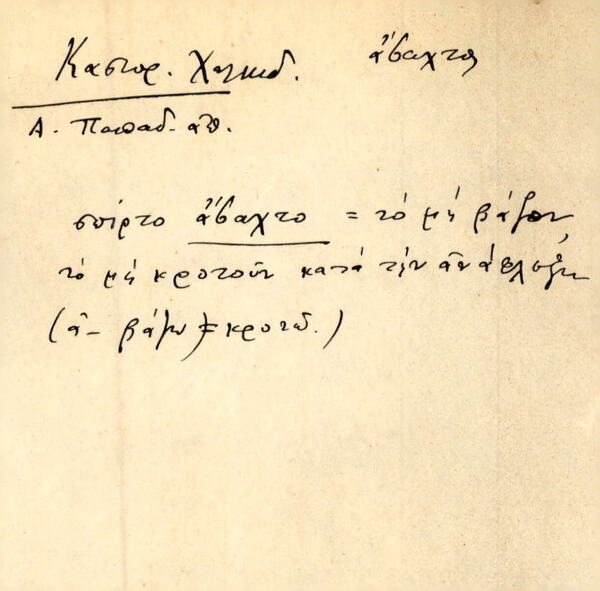 Καστορ. Χαλκιδ. ἄβαχτος
Α. Παπαδ.
σπίρτο ἄβαχτο = τὸ μὴ βάζον,
τὸ μὴ κροτοῦν κατὰ τὴν ἀνάφλεξιν
(ἀ- βάζω = κροτῶ.)